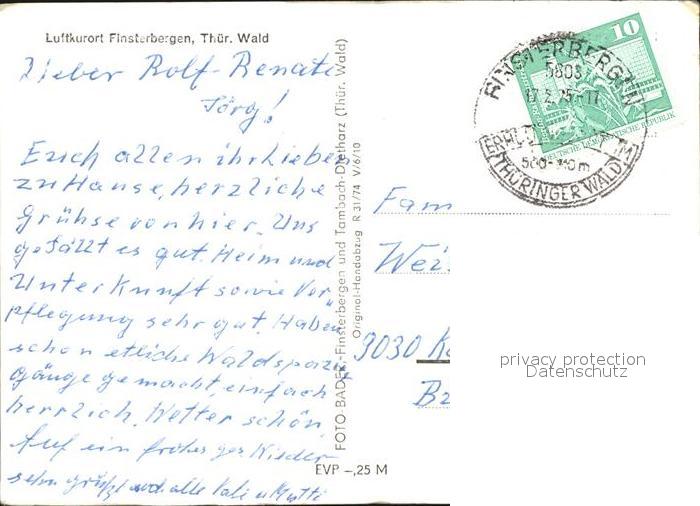 Luftkurort Finsterbergen, Thür. Wald
Lieber Rolf-Renate
Jörg!
Euch allen ihr Lieben
zu Hause, herzliche
Grühse von hier. Uns
gefällt es gut. Heim und
Unterkunft sowie Ver
pflegung sehr gut. Haben
schon etliche Waldspazir
gänge gemacht, einfach
herrlich. Wetter schön.
Auf ein frohes ges. Wieder-
sehn grüßt euch alle Vati u Mutti
FOTO-BADER, Finsterbergen und Tambach-Dietharz (Thür. Wald)
Original-Handabzug R 31/74 V/6/10
EVP –,25 M
10
DEUTSCHE DEMOKRATISCHE REPUBLIK
FINSTERBERGEN
5803
17.2.75-11
THÜRINGER WALD
Fam
Wei
9030 K
Br
privacy protection
Datenschutz